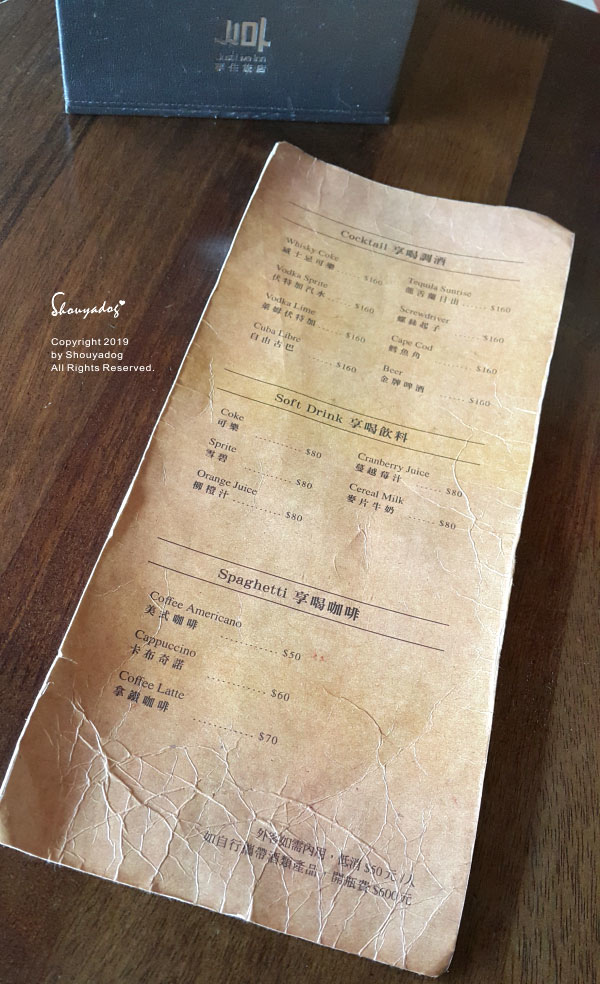 Shouyadog
Copyright 2019
by Shouyadog
All Rights Reserved.
Cocktail 享喝調酒
Whisky Coke
威士忌可樂 $160
Vodka Sprite
伏特加汽水 $160
Vodka Lime
萊姆伏特加 $160
Cuba Libre
自由古巴 $160
Tequila Sunrise
龍舌蘭日出 $160
Screwdriver
螺絲起子 $160
Cape Cod
鱈魚角 $160
Beer
金牌啤酒 $160
Soft Drink 享喝飲料
Coke
可樂 $80
Sprite
雪碧 $80
Orange Juice
柳橙汁 $80
Cranberry Juice
蔓越莓汁 $80
Cereal Milk
麥片牛奶 $80
Spaghetti 享喝咖啡
Coffee Americano
美式咖啡 $50
Cappuccino
卡布奇諾 $60
Coffee Latte
拿鐵咖啡 $70
外客如需內用，低消 $50 元 /人
如自行攜帶酒類產品，開瓶費 $600 元